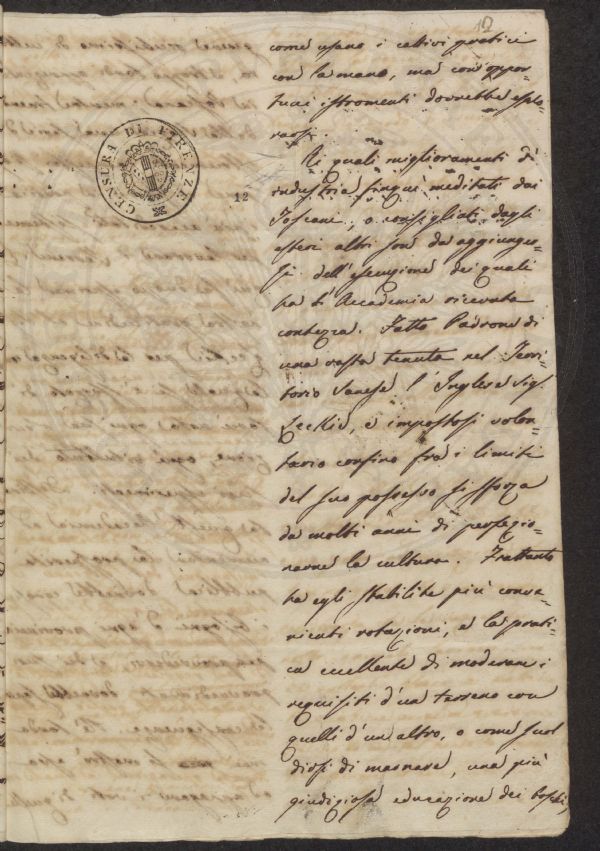 12
come usano i cattivi pratici
con la mano, ma con oppor=
tuni istromenti dovrebbe esplo
rarsi.
Ai quali miglioramenti d'
industria finqui meditati dai
Toscani, o consigliati dagli
esteri altri son da aggiunger
si dell'esecuzione dei quali
ha l'Accademia ricevuta
contezza. Fatto Padrone di
una vasta tenuta nel Terri
torio Sanese l'Inglese Sigr.
e impostosi volon=
tario confine fra i limiti
del suo possesso si sforza
da molti anni di perfezio=
narne la cultura. Frattanto
ha egli stabilite più conve=
nienti rotazioni, e la prati=
ca eccellente di moderare i
requisiti d'un terreno con
quelli d'un altro, o come suol
dirsi di marnare, una più
giudiziosa educazione dei boschi,
CENSURA DI FIRENZE
12